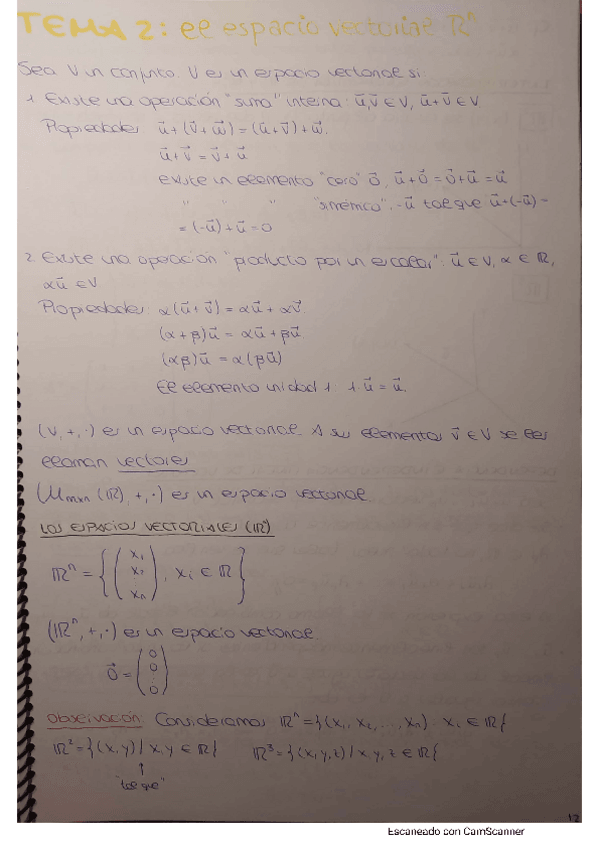 TEMA 2: el espacio vectorial ℝⁿ
Sea V un conjunto. V es un espacio vectorial si
1. Existe una operación "suma" interna: u⃗,v⃗ ∈ V, u⃗+v⃗ ∈ V
Propiedades u⃗+(v⃗+w⃗)=(u⃗+v⃗)+w⃗.
u⃗+v⃗ = v⃗+u⃗
existe un elemento "cero" 0⃗, u⃗+0⃗=0⃗+u⃗=u⃗
" " " "simétrico", -u⃗ tal que u⃗+(-u⃗) =
= (-u⃗)+u⃗=0
2. Existe una operación "producto por un escalar": u⃗ ∈ V, α ∈ ℝ,
αu⃗ ∈ V
Propiedades α(u⃗+v⃗)=αu⃗+αv⃗.
(α+β)u⃗ = αu⃗+βu⃗.
(αβ)u⃗ = α(βu⃗)
El elemento unidad 1. 1·u⃗=u⃗.
(V,+,·) es un espacio vectorial. A sus elementos v⃗ ∈ V se les
llaman vectores
(Mmxn (ℝ),+,·) es un espacio vectorial.
LOS ESPACIOS VECTORIALES (ℝ)
ℝⁿ = {(x₁ x₂ xₙ), xᵢ ∈ ℝ}
(ℝⁿ,+,·) es un espacio vectorial.
0⃗ = (0 0 : 0)
Observación: Consideramos ℝⁿ={(x₁,x₂,...,xₙ): xᵢ ∈ ℝ}
ℝ²={(x,y)/x,y ∈ ℝ} ℝ³={(x,y,z)/x,y,z ∈ ℝ}
↑
"tal que"
12
Escaneado con CamScanner